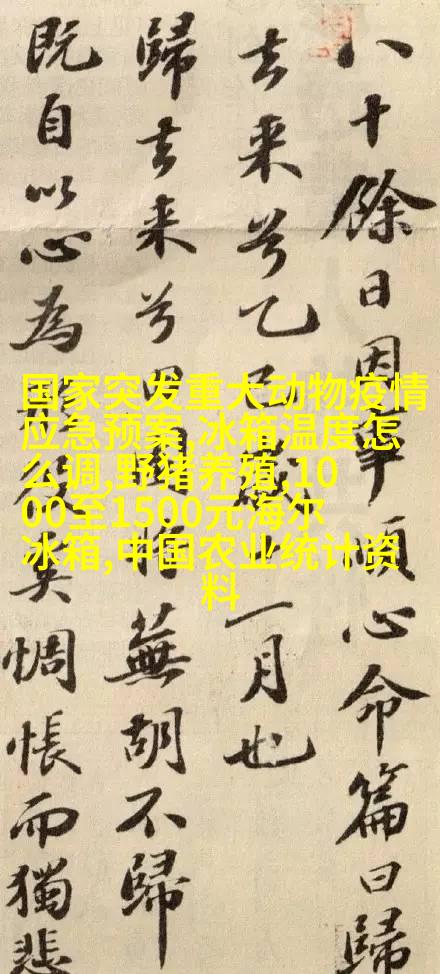 八十餘日因事順心命篇曰歸
去来兮乙巳歲一月也
歸去来兮田園將蕪胡不歸
既自以心為形役奚惆悵而獨悲
国家突发重大动物疫情
应急预案,冰箱温度怎
么调,野猪养殖,10
00至1500元海尔
冰箱,中国农业统计资
料